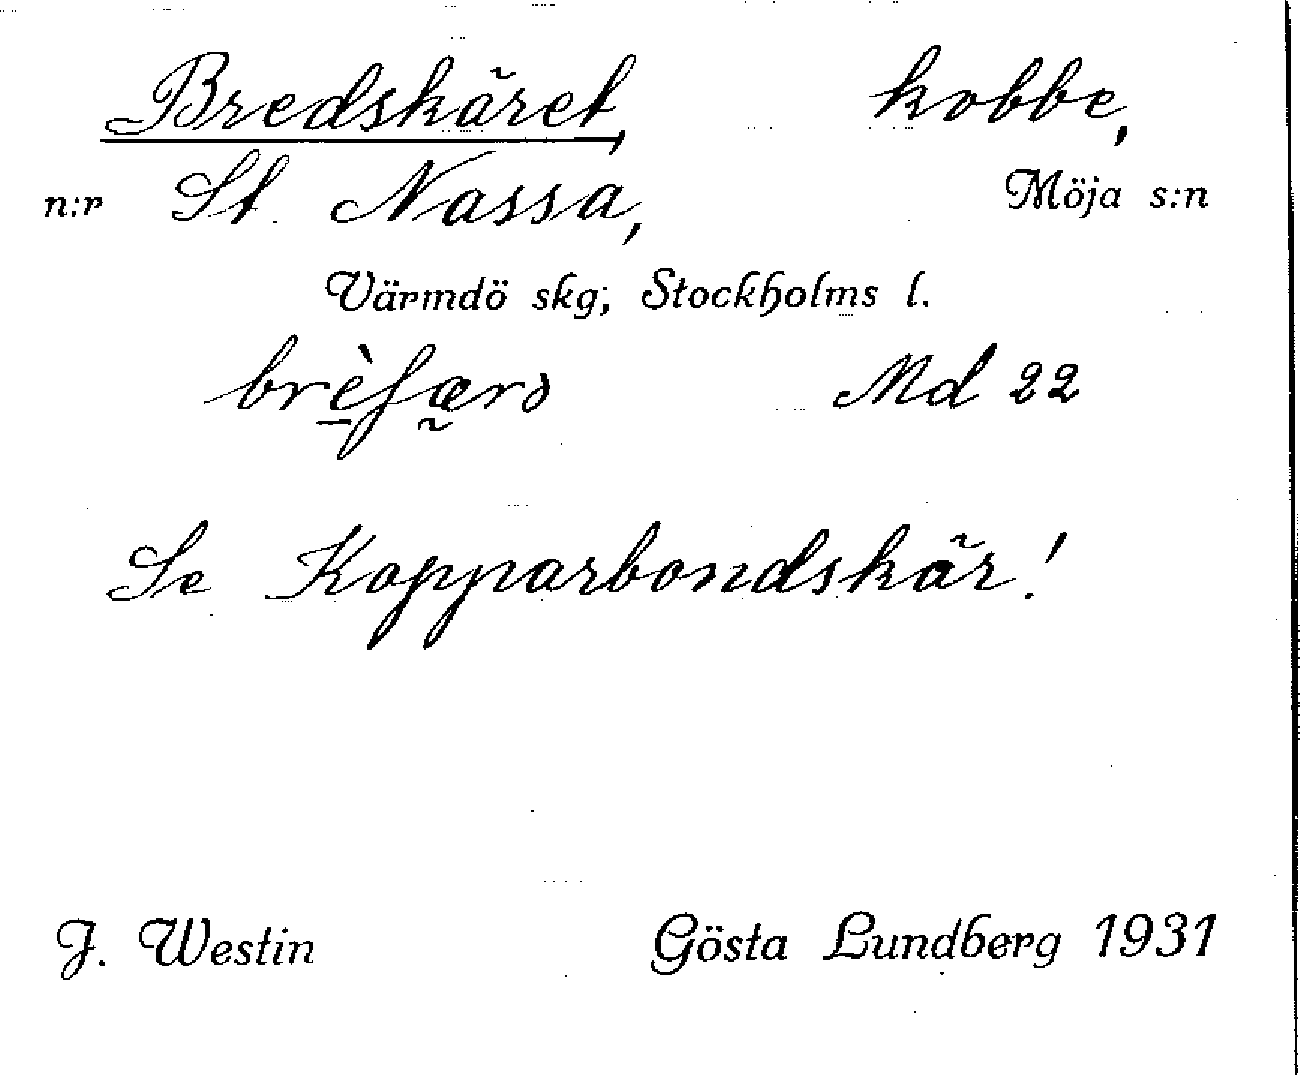 Bredskäret, kobbe,
n:r St. Nassa, Möja s:n
Värmdö skg; Stockholms l.
brèfærə Md 22
Se Kopparbondskär!
J. Westin Gösta Lundberg 1931